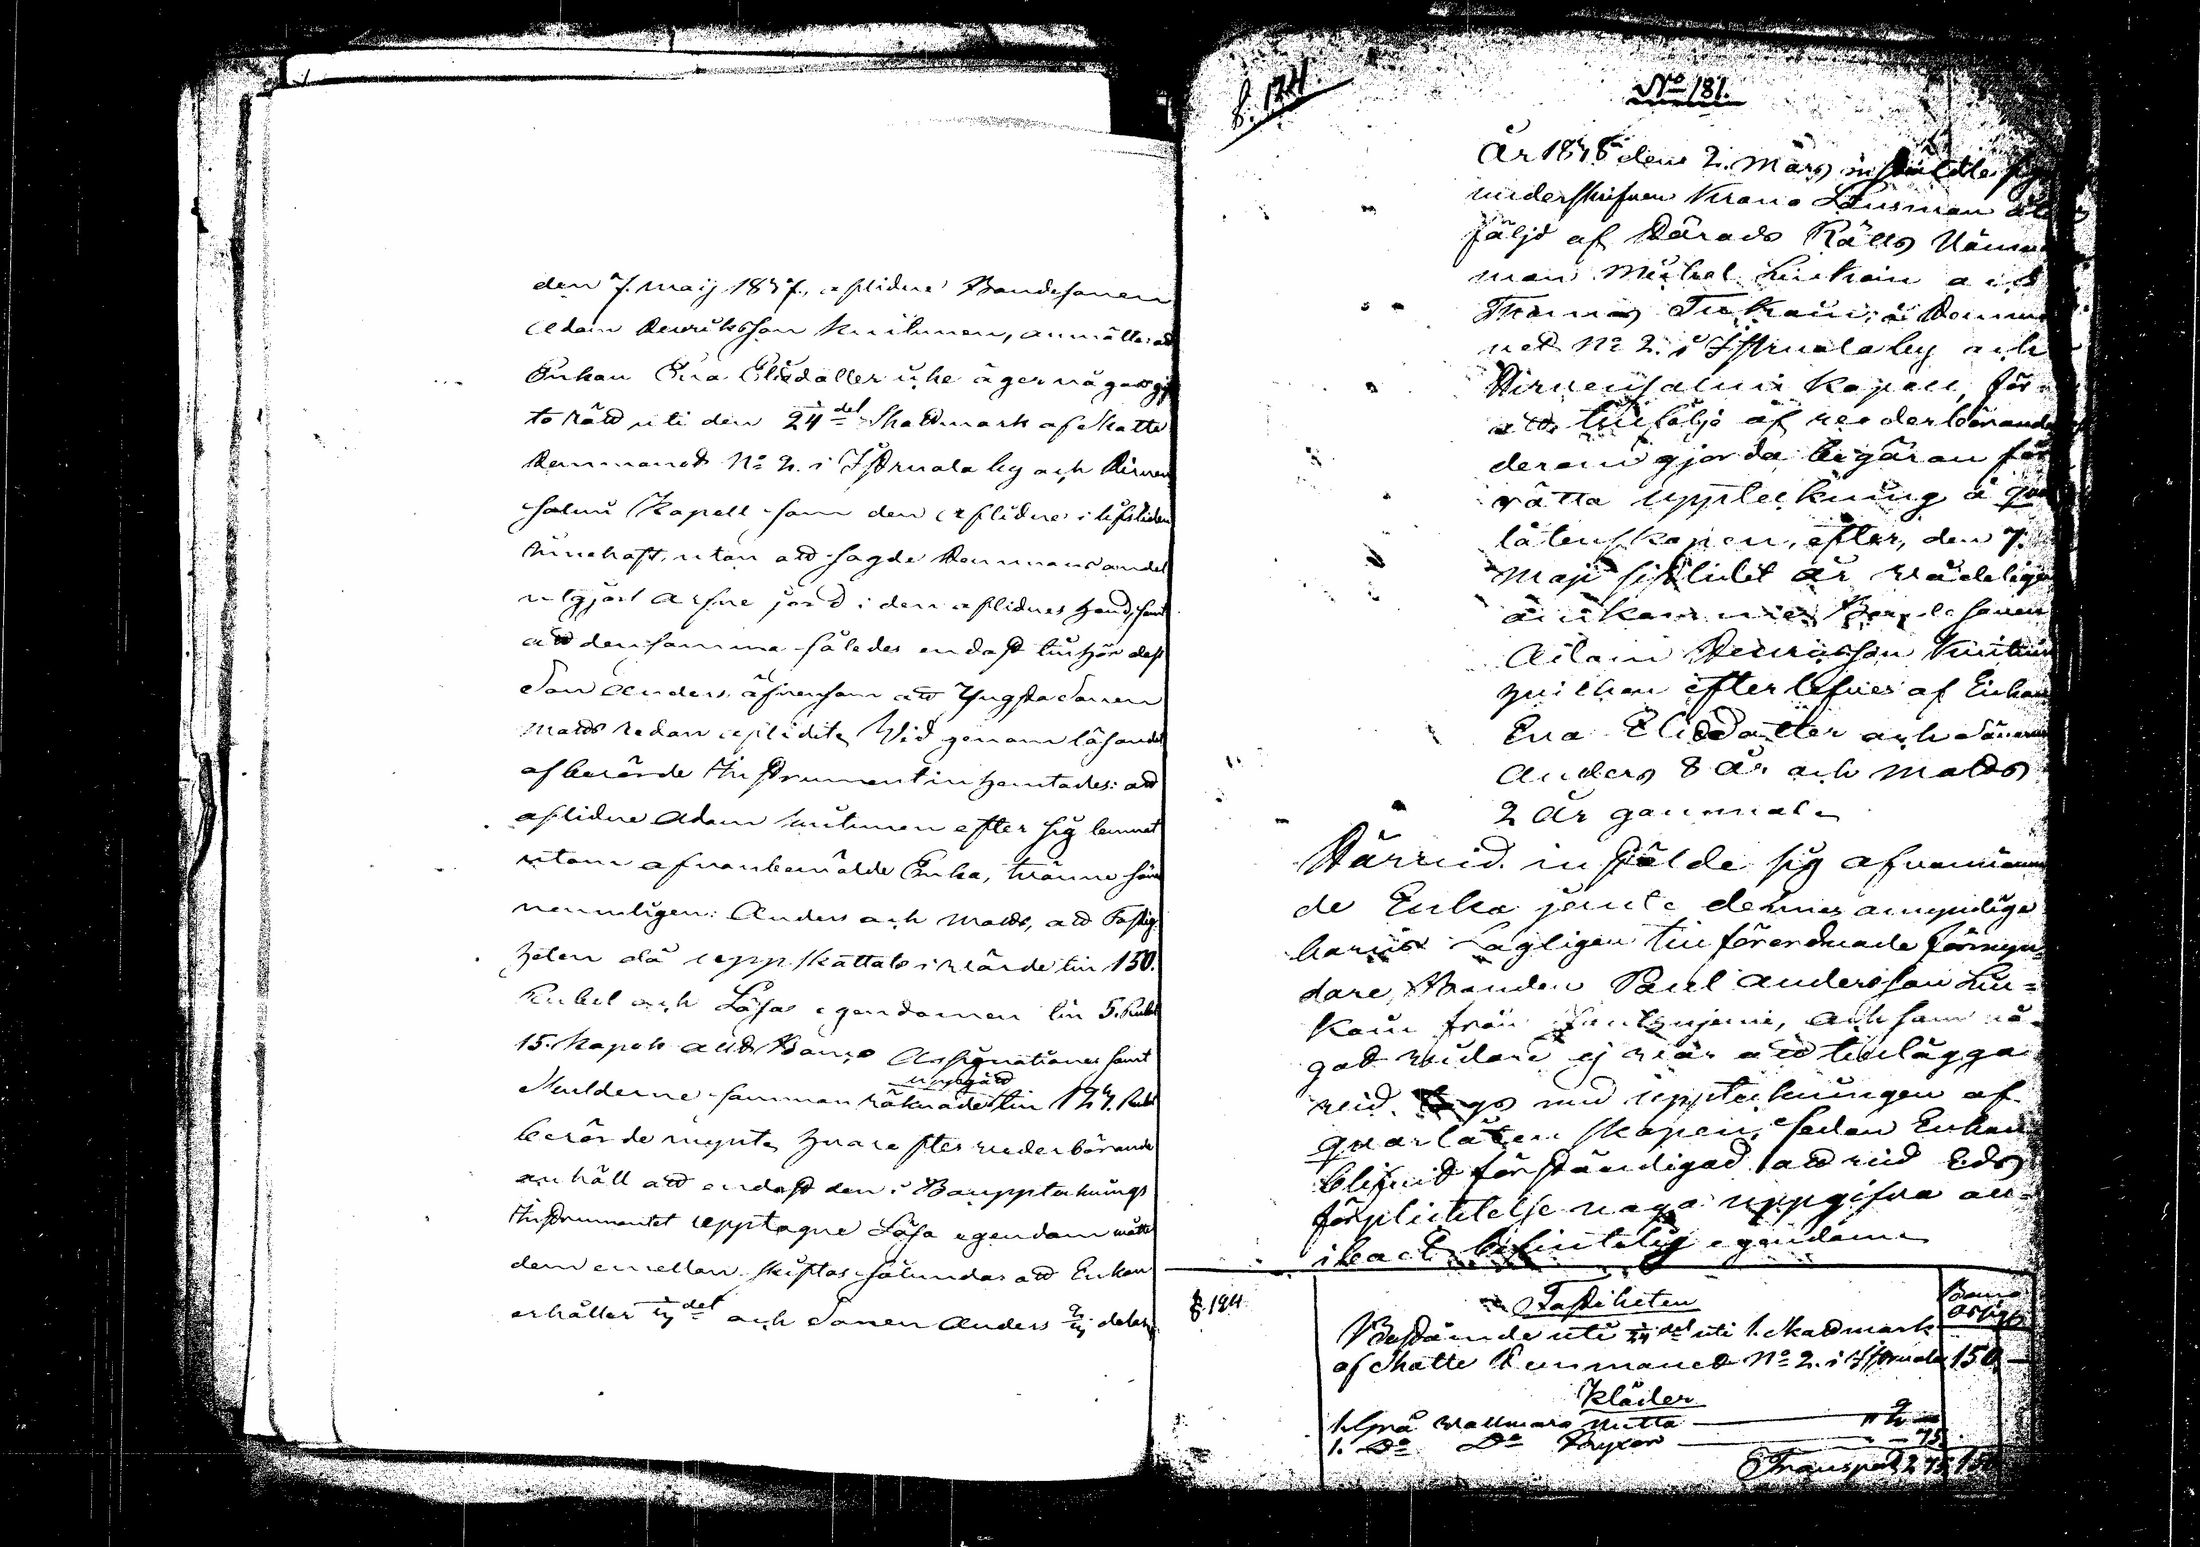 den 7. maij 1837, aflidne Bondesonen
Adam Henriksson Kuitunen, anmälte att
Enkan Eva Elisdotter icke äger någon gif
to rätt uti den 24 del Skattmark af Skatte
Hemmanet No 2. i Istruala by och Hirven
salmi Kapell som den aflidne i lifstiden
innehaft, utan att sagde Hemmans andel
utgjort arfve jord i den aflidnes hand, samt
att densamma således endast tillhör dess
Son Anders, äfvensom att Yngsta Sonen
Matts redan aflidit. Vid genomläsandet
af berörde Instrument inhemtades: att
aflidne Adam Kuitunen efter sig lemnat
utom afvanbemälde Enka, tvänne söner
nemmligen: Anders och Matts, att Fastig-
heten då uppskattats i värde till 150.
Rubel och Lösa egendomen till 5. Rubel
15. Kopek allt Banco Assignationer samt
Skulderne sammanräknade uppgått till 124. Rubel
berörde mynt, hvarefter vederbörande
anhöll att endast den i Bouppteknings
Instrumentet upptagne Lösa egendom måtte
dem emellan skiftas sålunda att Enkan
erhåller 1/3 del och Sonen Anders 2/3 delar,
§. 124.
No 181.
År 1838 den 2. Mars inställte sig
underskrifven Krono Länsman åt
följd af Härads Rätts Nämnde
man Michel Liukoin och
Thomas Tukain, å Hemma
net No 2. i Istruala by och
Hirvensalmi Kapell, för
att tillfölje af vederbörandes
derom gjorda begäran för
rätta uppteckning å qvar
låtenskapen, efter, den 7.
Maji sistlidit år vådeligen
omkomne Bondesonen
Adam Henriksson Kuitun
hvilken efterlefves af Enkan
Eva Elisdotter och Sönerne
Anders 8 år och Matts
2 år gammal.
Härvid inställde sig afvannämn
de Enka jemte dennes omyndige
barns Lagligen tillförordnade Förmyn-
dare, Bonden Paul Andersson Liu-
koin från , och som nå-
got vidare ej var att tillägga
vid. togs med uppteckningen af
qvarlåtenskapen, sedan Enkan
blifvit förständigad att vid Eds
förplichtelse noga uppgifva all
i boet befintelig egendom.
§. 124
Fastiheten
Banco
Assign
Bestående uti 1/24 del uti 1. Skattmark
af Skatte Hemmanet No 2. i Istruala 150 —
Kläder
1. Grå Vallmars Mutta — " 2 —
1. Do Do Byxor — " — 75
Transport 2 75 150